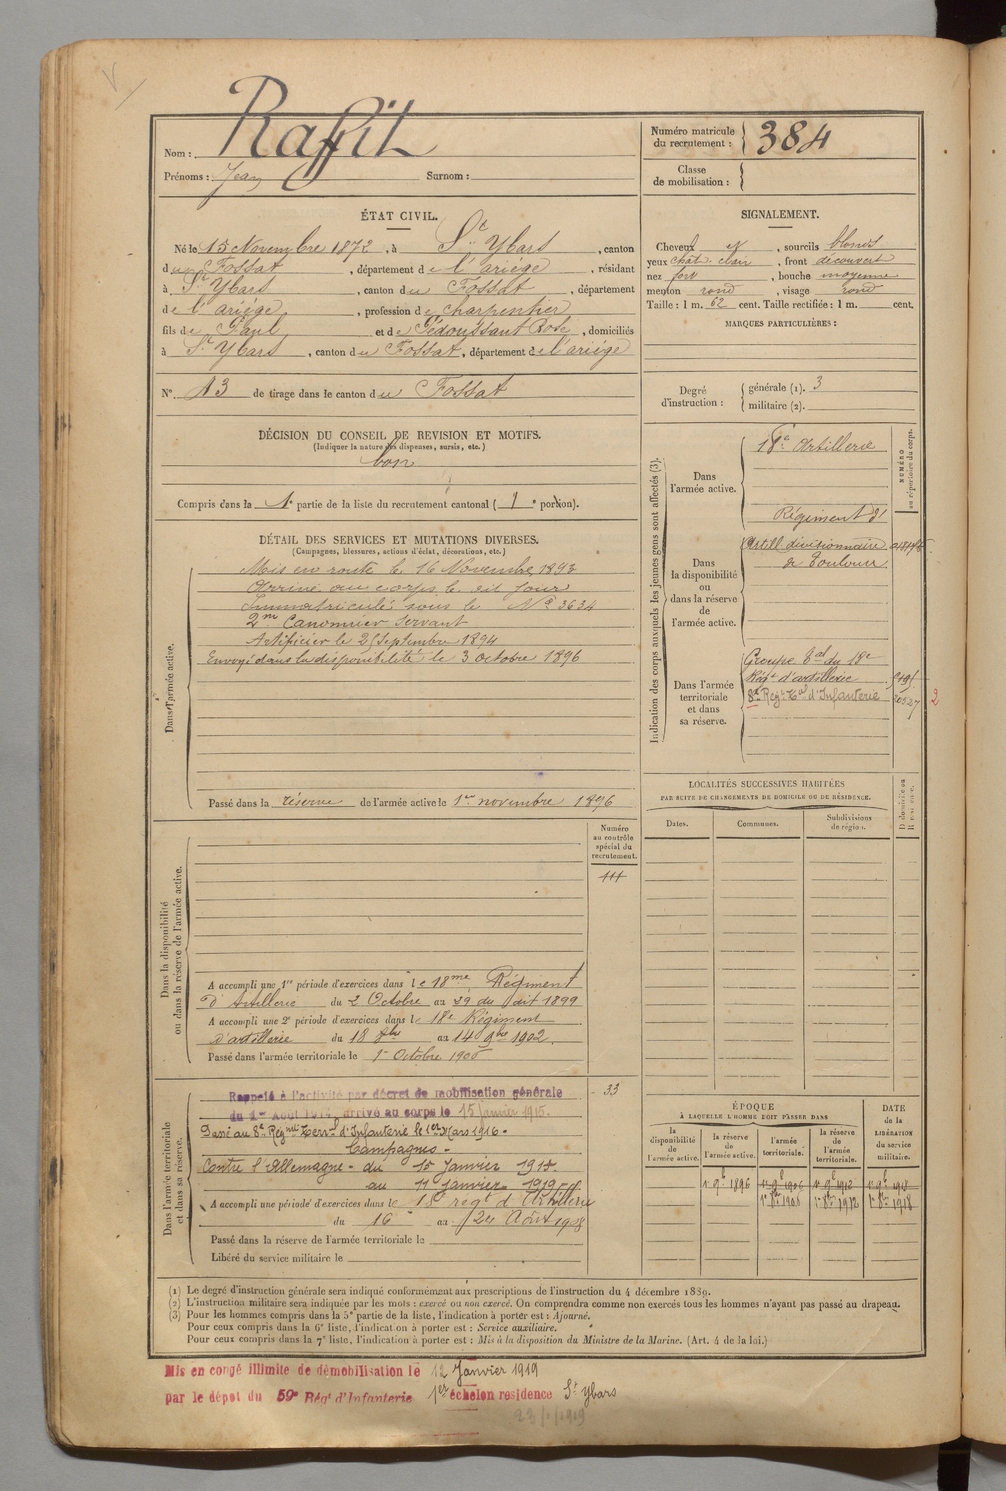 Raffit
Nom :
Prénoms : Jean Surnom :
Numéro matricule
du recrutement : 384
Classe
de mobilisation :
ÉTAT CIVIL.
Né le 15 Novembre 1872, à St Ybars, canton
du Fossat, département de l'ariége, résidant
à St Ybars, canton du Fossat, département
de l'ariége, profession de charpentier
fils de Paul et de Pédoussaut Rose, domiciliés
à St Ybars, canton du Fossat, département de l'ariége
N°. 13 de tirage dans le canton du Fossat
DÉCISION DU CONSEIL DE REVISION ET MOTIFS.
(Indiquer la nature des dispenses, sursis, etc.)
bon
Compris dans la 1e partie de la liste du recrutement cantonal (1e portion).
SIGNALEMENT.
Cheveux et, sourcils blonds
yeux chât. clair, front découvert
nez fort, bouche moyenne
menton rond, visage rond
Taille : 1 m. 62 cent. Taille rectifiée : 1 m. cent.
MARQUES PARTICULIÈRES :
Degré
d'instruction :
générale (1). 3
militaire (2).
DÉTAIL DES SERVICES ET MUTATIONS DIVERSES.
(Campagnes, blessures, actions d'éclat, décorations, etc.)
Dans l'armée active.
Mis en route le 16 Novembre 1893
Arrivé au corps le dit jour
Immatriculé sous le N° 3634
2me Canonnier servant
Artificier le 21 Septembre 1894
Envoyé dans la disponibilité le 3 octobre 1896
Passé dans la réserve de l'armée active le 1er novembre 1896
Indication des corps auxquels les jeunes gens sont affectés (3).
NUMÉRO
au répertoire du corps.
Dans
l'armée active.
18e Artillerie
Dans
la disponibilité
ou
dans la réserve
de
l'armée active.
Régiment d'
Artill divisionnaire
de Toulouse
Dans l'armée
territoriale
et dans
sa réserve.
Groupe Tal du 18e
Régt d'artillerie
8e Regt Tal d'Infanterie
2
LOCALITÉS SUCCESSIVES HABITÉES
PAR SUITE DE CHANGEMENTS DE DOMICILE OU DE RÉSIDENCE.
Dates.
Communes.
Subdivisions
de région.
D domicile ou
R résidence.
Dans la disponibilité
ou dans la réserve de l'armée active.
Numéro
au contrôle
spécial du
recrutement.
A accompli une 1re période d'exercices dans le 18me Régiment
d'Artillerie du 2 Octobre au 29 du dit 1899
A accompli une 2e période d'exercices dans le 18e Régiment
d'artillerie du 18 8bre au 14 9bre 1902.
Passé dans l'armée territoriale le 1er Octobre 1906
Dans l'armée territoriale
et dans sa réserve.
Rappelé à l'activité par décret de mobilisation générale
du 1er Août 1914, arrivé au corps le 15 Janvier 1915.
33
Passé au 8e Régnt Terral d'Infanterie le 1er Mars 1916 -
Campagnes -
Contre l'Allemagne - du 15 Janvier 1915
au 11 janvier 1919
A accompli une période d'exercices dans le 18e regt d'Artillerie
du 16 au 24 Août 1908
Passé dans la réserve de l'armée territoriale le
Libéré du service militaire le
ÉPOQUE
À LAQUELLE L'HOMME DOIT PASSER DANS
DATE
de la
LIBÉRATION
du service
militaire.
la
disponibilité
de l'armée active.
la réserve
de
l'armée active.
l'armée
territoriale.
la réserve
de
l'armée
territoriale.
1er 9bre 1896 1er 9bre 1906 1er 9bre 1912 1er 9bre 1918
1er 8bre 1906 1er 8bre 1912 1er 8bre 1918
(1) Le degré d'instruction générale sera indiqué conformément aux prescriptions de l'instruction du 4 décembre 1889.
(2) L'instruction militaire sera indiquée par les mots : exercé ou non exercé. On comprendra comme non exercés tous les hommes n'ayant pas passé au drapeau.
(3) Pour les hommes compris dans la 5e partie de la liste, l'indication à porter est : Ajourné.
Pour ceux compris dans la 6e liste, l'indication à porter est : Service auxiliaire.
Pour ceux compris dans la 7e liste, l'indication à porter est : Mis à la disposition du Ministre de la Marine. (Art. 4 de la loi.)
Mis en congé illimité de démobilisation le 12 Janvier 1919
par le dépôt du 59e Régt d'Infanterie 1er échelon residence St Ybars
23/1/1919